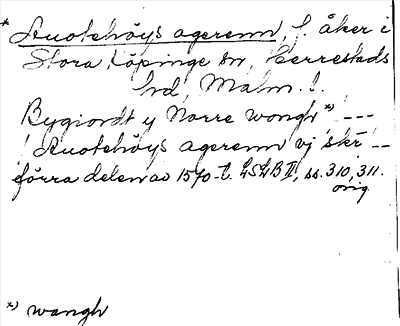 * Knotehöys agerenn, f. åker i
Stora Köpinge sn, Herrestads
hd, Malm. l.
Bygiordt y Norre wongh *) ---
/ Knotehöys agerenn vj skr̄ --
förra delen av 1570-t. LSLB II, ss. 310, 311.
orig
*) wangh